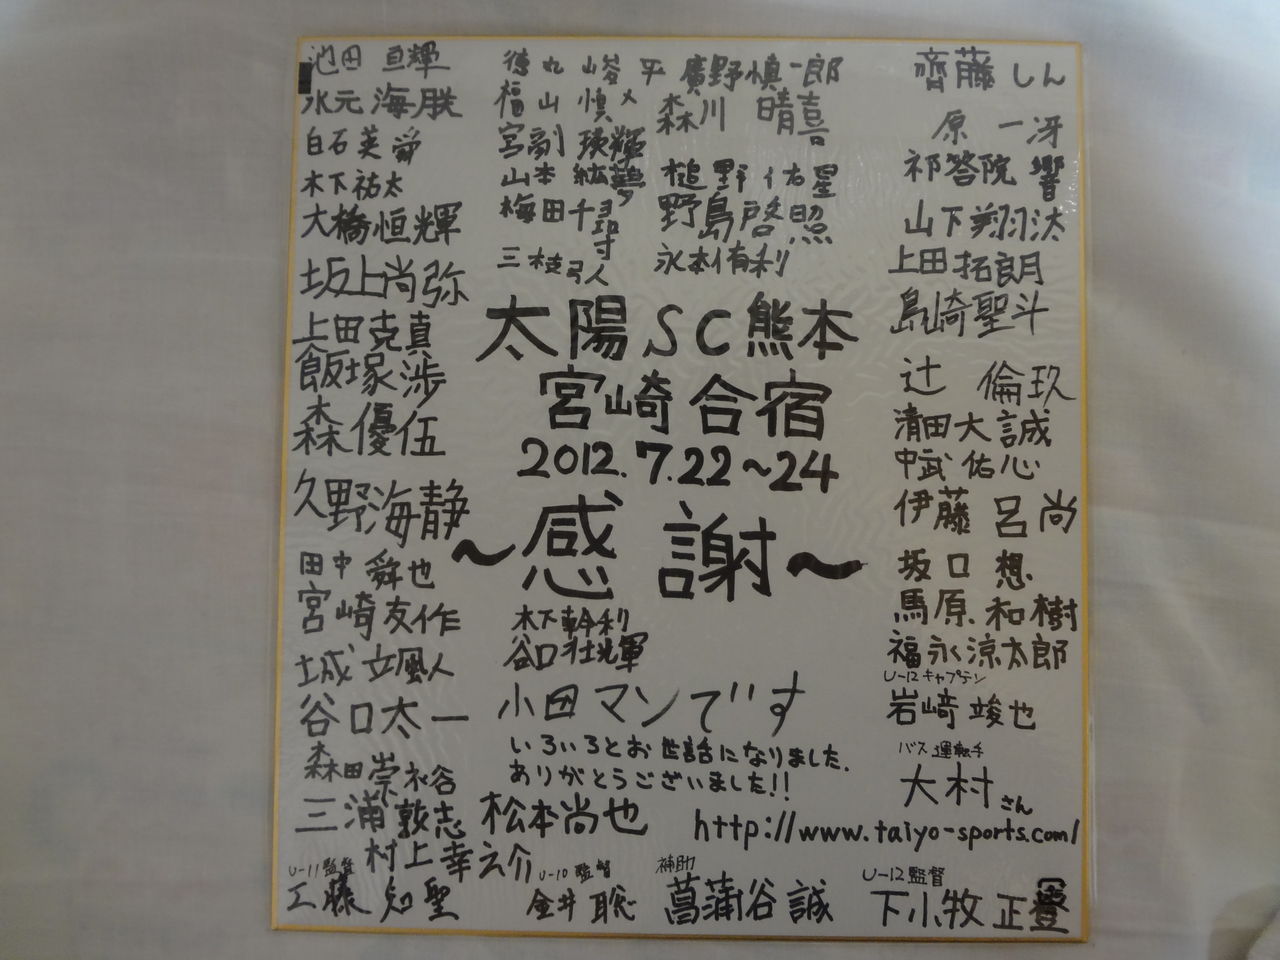 池田 亘輝
水元 海
白石英舜
木下祐太
大橋恒輝
坂上尚弥
上田克真
飯塚渉
森優伍
久野海静
田中舜也
宮崎友作
城 立颯人
谷口太一
森田崇
三浦敦志
村上幸之介
U-11監督
工藤 知聖
徳丸 峻平
福山 慎
宮副 瑛輝
山本 紘夢
梅田千尋
三枝弓人
廣野慎一郎
森川 晴喜
槌野佑星
野島啓照
永本侑利
太陽SC熊本
宮崎合宿
2012.7.22~24
~感謝~
木下幹利
谷口壮輝
小田マンです
いろいろとお世話になりました.
ありがとうございました!!
松本尚也
http://www.taiyo-sports.com/
U-10監督
金井 聡
補助
菖蒲谷 誠
齊藤しん
原 一冴
祁答院 響
山下翔汰
上田拓朗
島崎聖斗
辻 倫玖
清田大誠
中武佑心
伊藤 呂尚
坂口 想
馬原 和樹
福永涼太郎
U-12キャプテン
岩﨑竣也
バス運転手
大村さん
U-12監督
下小牧 正豊